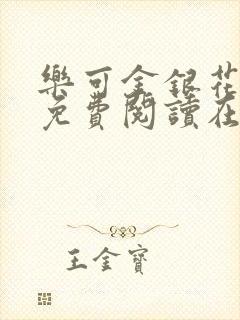 樂可金銀花
免費閱讀在
王金寶